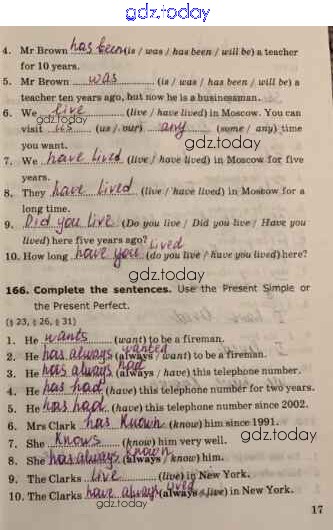 gdz.today
4. Mr Brown has been (is / was / has been / will be) a teacher
for 10 years.
5. Mr Brown was (is / was / has been / will be) a
teacher ten years ago, but now he is a businessman.
6. We live (live / have lived) in Moscow. You can
visit us (us / our) any (some / any) time
gdz.today
you want.
7. We have lived (live / have lived) in Moscow for five
years.
8. They have lived (live / have lived) in Moscow for a
long time.
9. Did you live (Do you live / Did you live / Have you
lived) here five years ago?
10. How long have you lived (do you live / have you lived) here?
gdz.today
166. Complete the sentences. Use the Present Simple or
the Present Perfect.
(§ 23, § 26, § 31)
1. He wants (want) to be a fireman.
2. He has always wanted (always / want) to be a fireman.
3. He has always had (always / have) this telephone number.
4. He has had (have) this telephone number for two years.
5. He has had (have) this telephone number since 2002.
6. Mrs Clark has known (know) him since 1991.
7. She knows (know) him very well.
gdz.today
8. She has always known (always / know) him.
9. The Clarks live (live) in New York.
10. The Clarks have always lived (always / live) in New York.
17
gdz.today